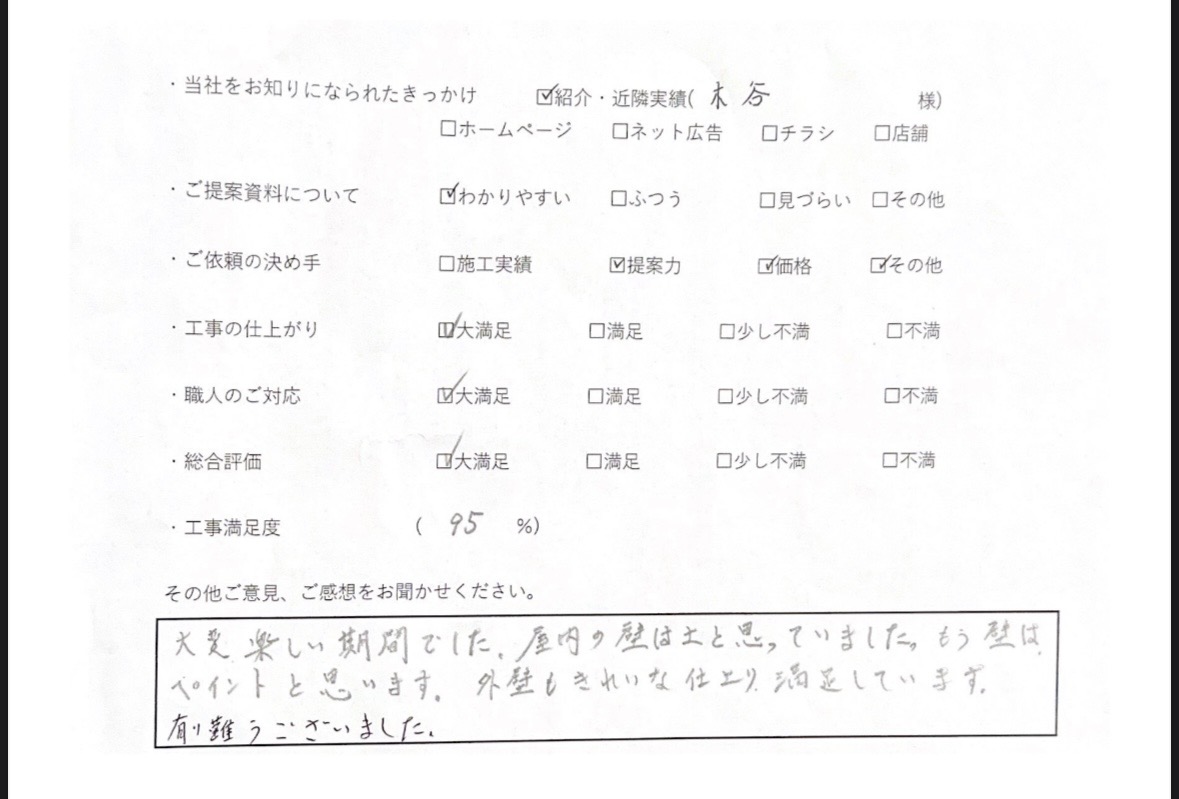 ・当社をお知りになられたきっかけ ☑紹介・近隣実績( 木谷 様)
☐ホームページ ☐ネット広告 ☐チラシ ☐店舗
・ご提案資料について ☑わかりやすい ☐ふつう ☐見づらい ☐その他
・ご依頼の決め手 ☐施工実績 ☑提案力 ☑価格 ☑その他
・工事の仕上がり ☑大満足 ☐満足 ☐少し不満 ☐不満
・職人のご対応 ☑大満足 ☐満足 ☐少し不満 ☐不満
・総合評価 ☑大満足 ☐満足 ☐少し不満 ☐不満
・工事満足度 ( 95 %)
その他ご意見、ご感想をお聞かせください。
大変楽しい期間でした。屋内の壁は土と思っていました。もう壁は
ペイントと思います。外壁もきれいな仕上り満足しています。
有難うございました。